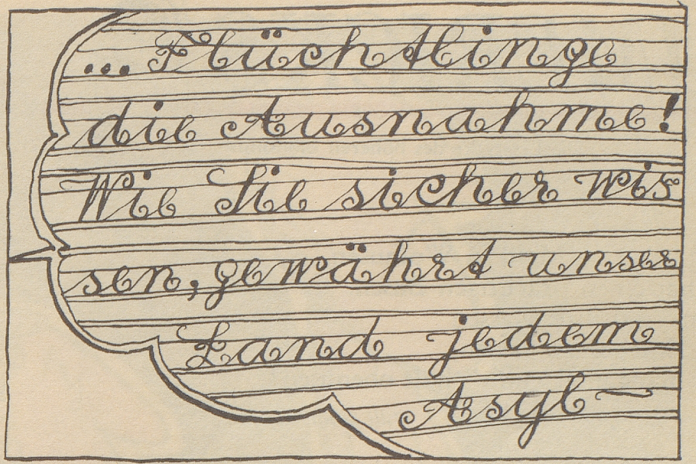 ... Flüchtlinge
die Ausnahme!
Wie Sie sicher wis
sen, gewährt unser
Land jedem
Asyl~